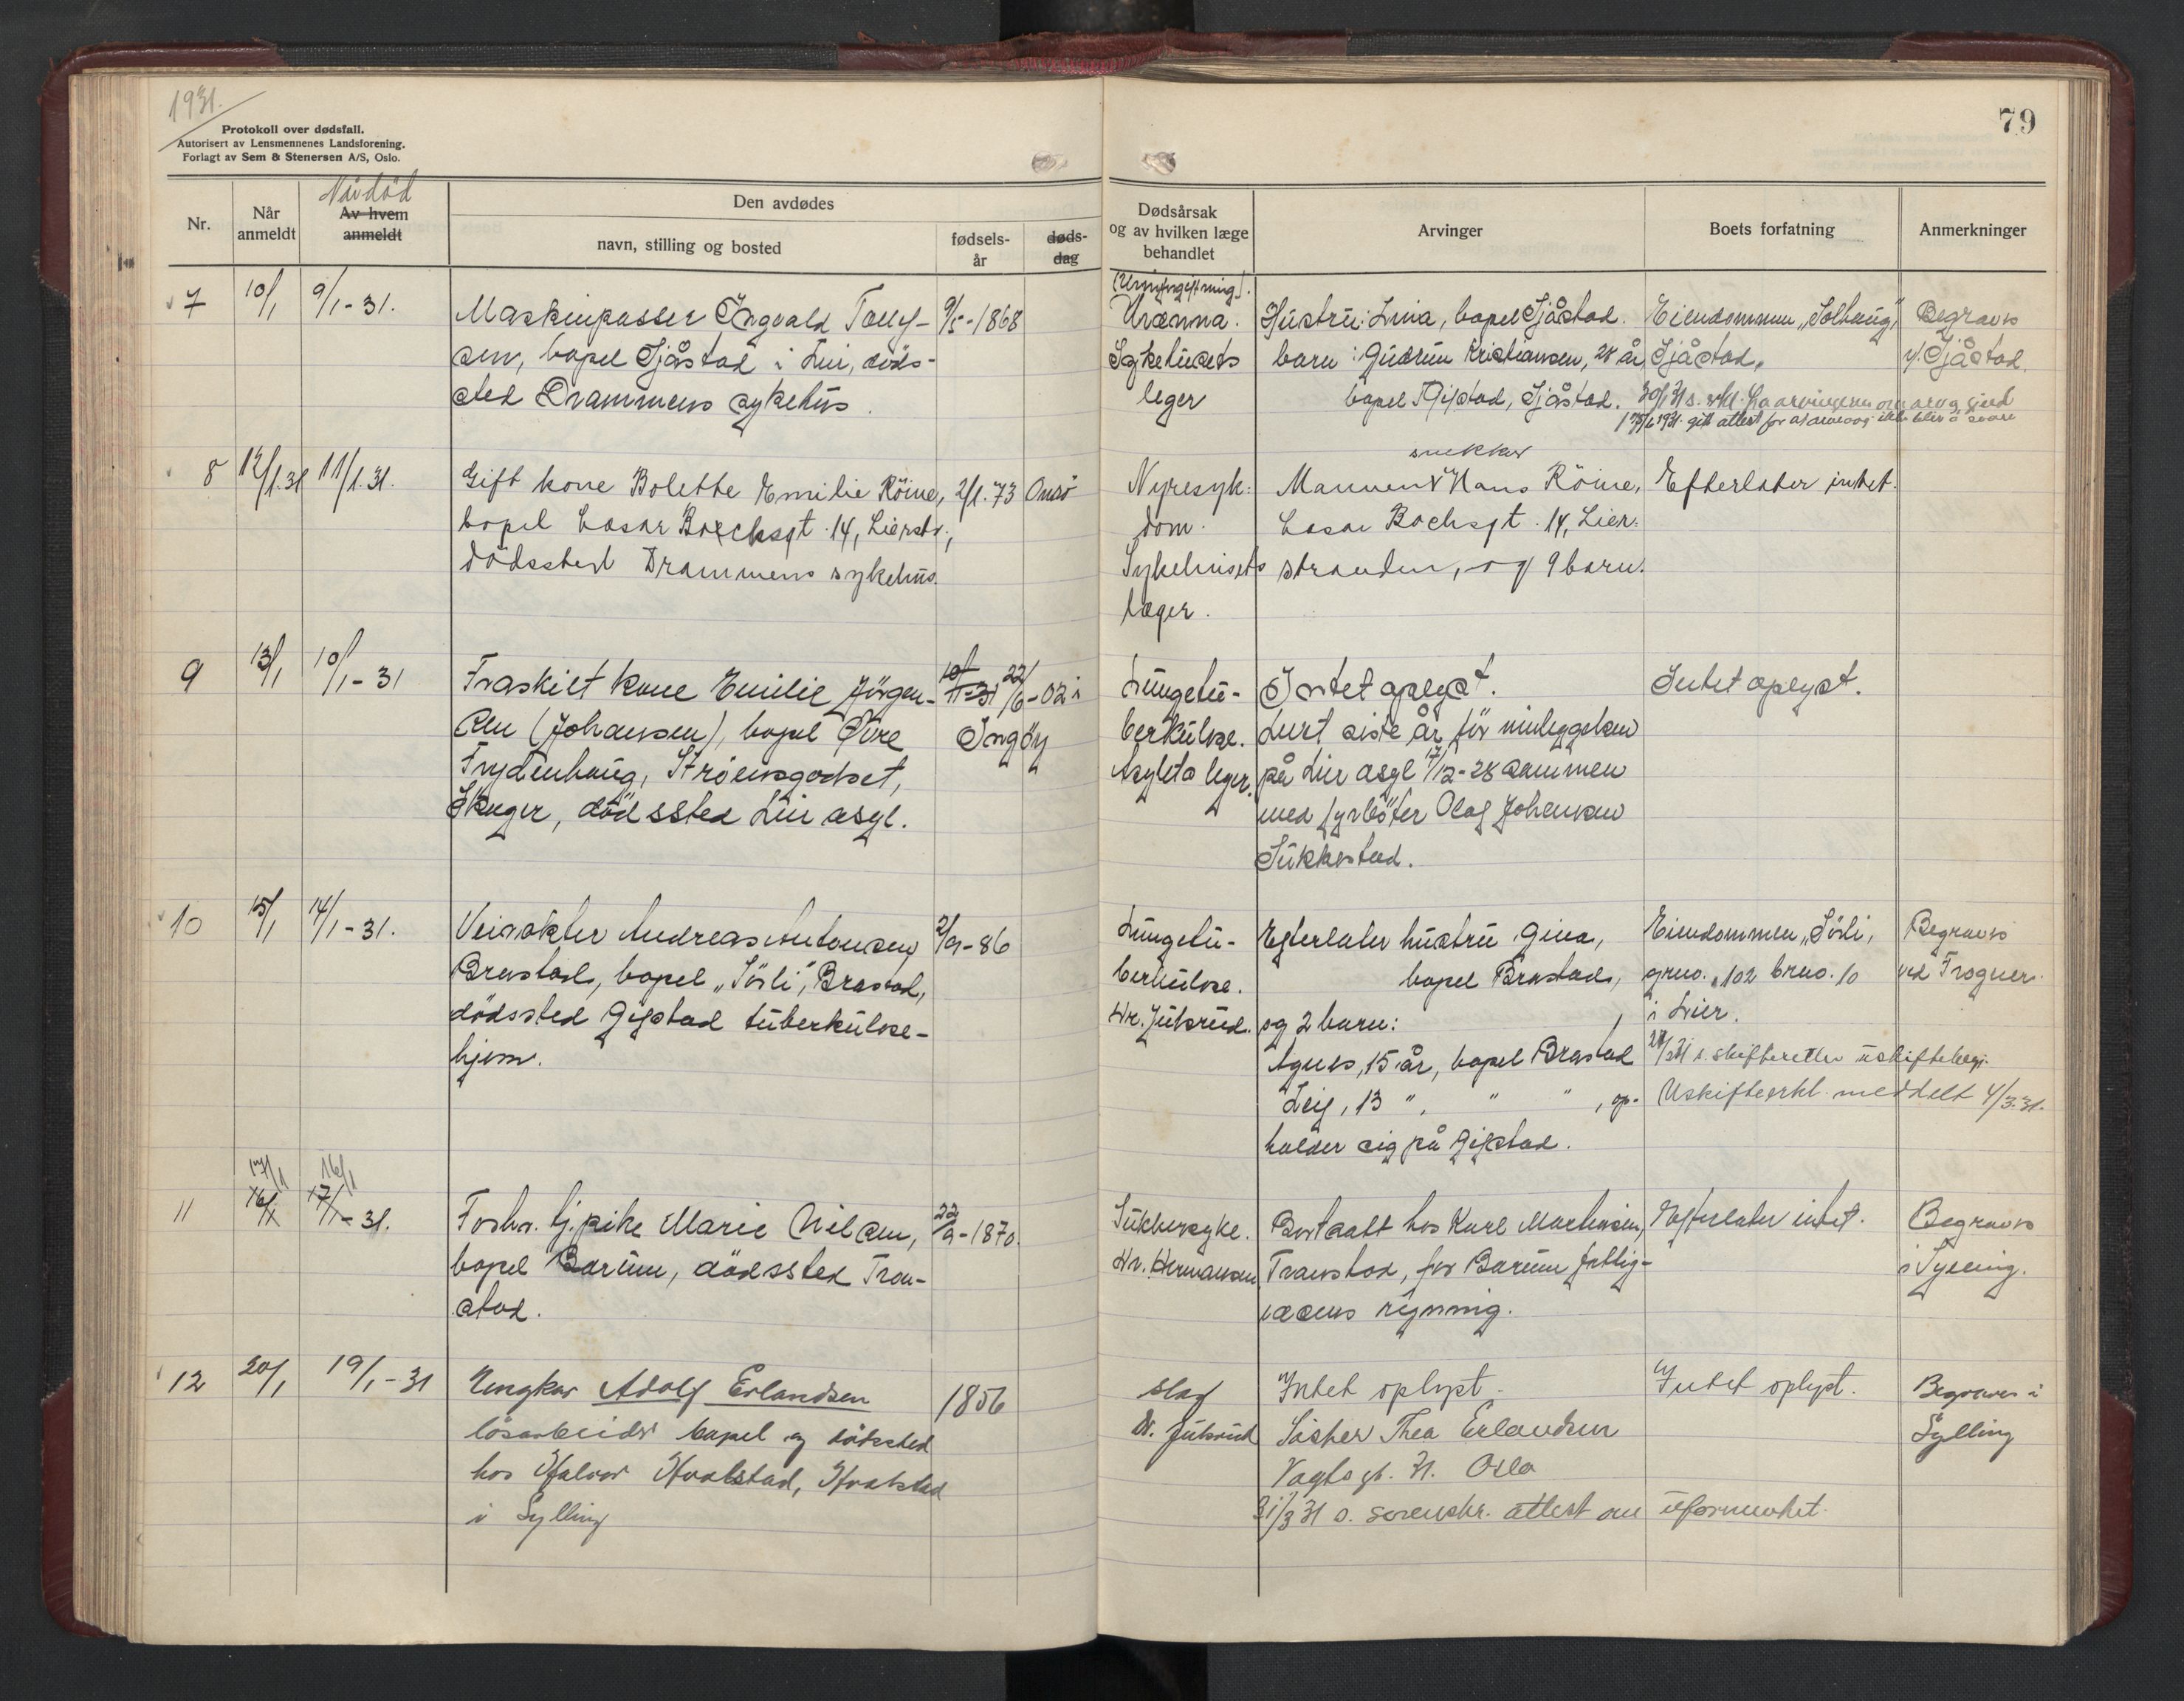 1931.
Protokoll over dødsfall.
Autorisert av Lensmennenes Landsforening.
Forlagt av Sem & Stenersen A/S, Oslo.
79
Nr.
Når anmeldt
Når død
Av hvem anmeldt
Den avdødes
navn, stilling og bosted
fødsels-år
døds-dag
Dødsårsak og av hvilken læge behandlet
Arvinger
Boets forfatning
Anmerkninger
7 10/1 9/1-31.
Maskinpasser Ingvald Tollef- 9/5-1868
sen, bopel Sjåstad i Lier, døds-
sted Drammens sykehus.
(Urinforgiftning).
Uræmia.
Sykehusets
leger
Hustru: Lina, bopel Sjåstad.
barn: Gudrun Kristiansen, 28 år,
bopel Gifstad, Sjåstad.
Eiendommen „Solhaug",
Sjåstad.
Begraves
v/ Sjåstad.
8 12/1.31 11/1.31.
Gift kone Bolette Emilie Röine, 2/1.73 Onsö
bopel Losar Bochsgt. 14, Lierstr.,
dödssted Drammens sykehus.
Nyresyk-
dom.
Sykehusets
læger.
snekker
Mannen Hans Röine,
Losar Bochsgt. 14, Lier-
stranden, og 9 barn.
Efterlater intet.
9 13/1 10/1-31
Fraskilt kone Emilie Jörgen- 22/6-02 i
sen (Johansen), bopel Övre Ingöy
Frydenhaug, Strömsgodset,
Skoger, dödssted Lier asyl.
Lungetu-
berkulose.
Asylets leger.
Intet oplyst.
Levt siste år för innleggelsen
på Lier asyl 17/12-28 sammen
med fyrböter Olaf Johansen
Sukkestad.
Intet oplyst.
10 15/1 14/1-31.
Veivokter Andreas Antonsen 2/9-86
Brastad, bopel „Sörli", Brastad,
dödssted Gifstad tuberkulose-
hjem.
Lungetu-
berkulose.
Dr. Juterud.
Efterlater hustru Gina,
bopel Brastad,
og 2 barn:
Agnes, 15 år, bopel Brastad
Leif, 13 ", " " , op-
holder sig på Gifstad.
Eiendommen „Sörli,
grno. 102 brno. 10
i Lier.
s. skifteretten uskiftebevi.
Uskifteerkl. meddelt 4/3.31.
Begraves
ved Frogner.
11 17/1 16/1
16/1 17/1-31.
Forhv. tj.pike Marie Nilsen, 22/9-1870.
bopel Bærum, dödssted Tran-
stad.
Sukkersyke.
Dr. Hermansen
Bortsatt hos Karl Mathisen,
Transtad, for Bærum fattig-
væsens regning.
Efterlater intet.
Begraves
i Sylling.
12 20/1 19/1-31
Ungkar Adolf Erlandsen 1856
lösarbeider bopel og dödssted
hos Halvor Hvalstad, Hvalstad
i Sylling
Slag
Dr. Juterud
Intet oplyst.
Söster Thea Erlandsen
Vogtsgt. 31. Oslo
31/3 31 s. sorenskr. attest om uformuenhet.
Intet oplyst.
Begraves i
Sylling